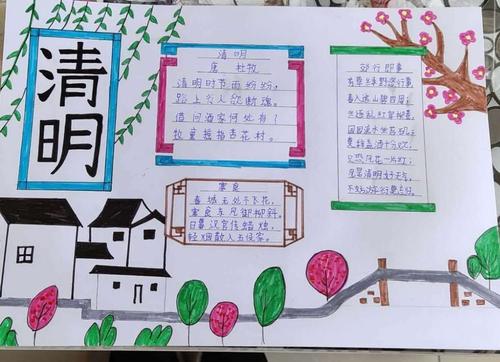 清明
清明
唐 杜牧
清明时节雨纷纷，
路上行人欲断魂。
借问酒家何处有？
牧童遥指杏花村。
寒食
春城无处不飞花，
寒食东风御柳斜。
日暮汉宫传蜡烛，
轻烟散入五侯家。
郊行即事
芳草绿野恣行事，
春入遥山碧四周；
兴逐乱红穿柳巷，
困临流水坐苔矶；
莫辞盏酒十分
只恐风花一片红；
况是清明好天气，
不妨游衍